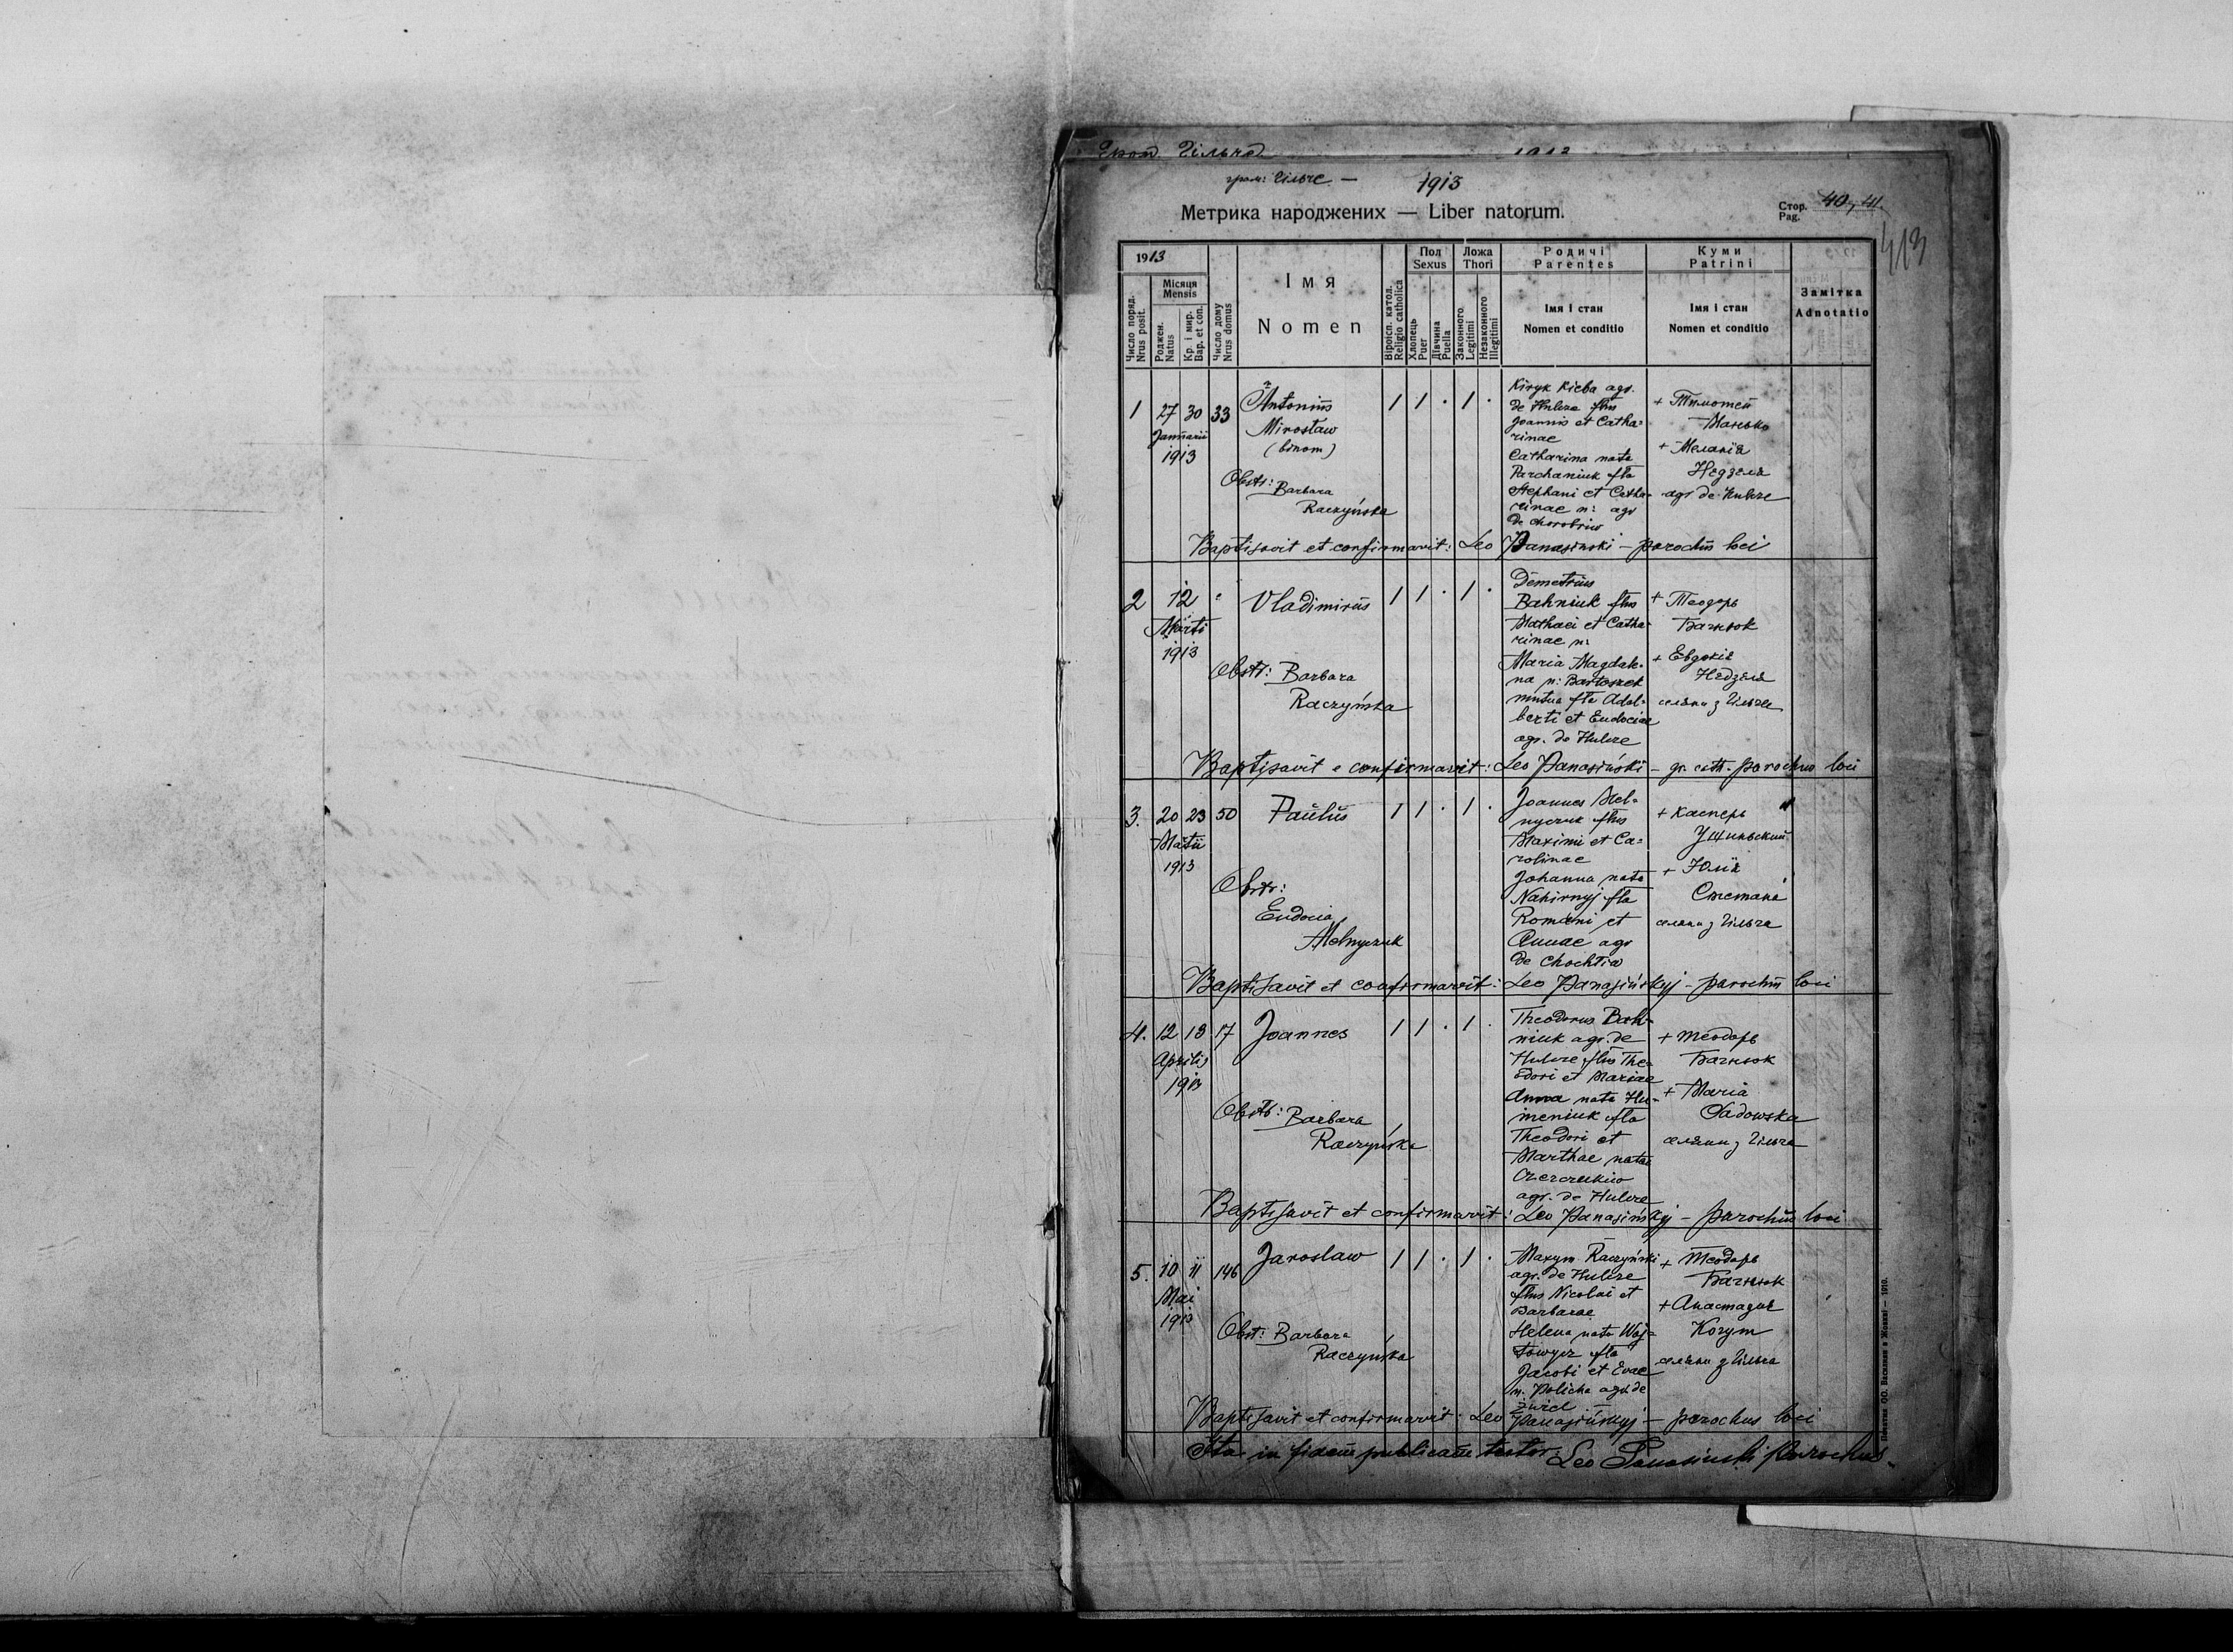 Гром. Гільча 1913
гром: Гільче — 1913
Метрика народжених — Liber natorum.
Стор. Pag. 40, 41.
413
1913
Число поряд. Nrus posit.
Місяця Mensis
Роджен. Natus
Кр. і мир. Bap. et con.
Число дому Nrus domus
Імя
Nomen
Віроісп. катол. Religio catholica
Пол Sexus
Хлопець Puer
Дівчина Puella
Ложа Thori
Законного Legitimi
Незаконного Illegitimi
Родичі Parentes
Імя і стан
Nomen et conditio
Куми Patrini
Імя і стан
Nomen et conditio
Замітка
Adnotatio
1 27 30 33
Januarii
1913
Antonius
Mirosław
(binom)
Obstr: Barbara
Raczyńska
1 1 . 1 .
Kiryk Kieba agr.
de Hulcze flius
Joannis et Catha-
rinae
Catharina nata
Parchaniuk fla
Stephani et Catha-
rinae n: agr
de Chorobriw
+ Тимотей
Манько
+ Меланія
Недзеля
agr de Hulcze
Baptisavit et confirmavit: Leo Panasinski – parochus loci
2 12
Marti
1913
Vladimirus
Obstr: Barbara
Raczyńska
1 1 . 1 .
Demetrius
Bahniuk flius
Mathaei et Catha-
rinae n:
Maria Magdale-
na n: Bartoszek
fla Adal-
berti et Eudociae
agr. de Hulcze
+ Теодоръ
Багнюк
+ Евдокія
Недзеля
селяни з Гільча
Baptisavit e confirmavit: Leo Panasiński – gr. cath. parochus loci
3. 20 23 50
Martii
1913
Paulus
Obstr:
Eudocia
Melnyczuk
1 1 . 1 .
Joannes Mel-
nyczuk flius
Maximi et Ca-
rolinae
Johanna nata
Nahirnyj fla
Romani et
Annae agr
de Chochłiw
+ Касперъ
Ущиньский
+ Юлія
Сметана
селяни з Гільча
Baptisavit et confirmavit: Leo Panasińskyj – parochus loci
4. 12 13 17
Aprilis
1913
Joannes
Obstr: Barbara
Raczyńska
1 1 . 1 .
Theodorus Bah-
niuk agr. de
Hulcze flius The-
odori et Mariae
Anna nata Hu-
meniuk fla
Theodori et
Marthae natae
agr. de Hulcze
+ Теодоръ
Багнюк
+ Maria
Sadowska
селяни з Гільча
Baptisavit et confirmavit: Leo Panasińskyj – parochus loci
5. 10 11 146
Mai
1913
Jaroslaw
Obst: Barbara
Raczyńska
1 1 . 1 .
Maxym Raczyński
agr. de Hulcze
flius Nicolai et
Barbarae
Helena nata Woj-
towycz fla
Jacobi et Evae
n. Policha agr. de
Żużel
+ Теодоръ
Багнюк
+ Анастазія
Когут
селяни з Гільча
Baptisavit et confirmavit: Leo Panasińskyj – parochus loci
Ita in fidem publicam testor: Leo Panasinski parochus.
Печатня ОО. Василиян в Жовкві — 1910.